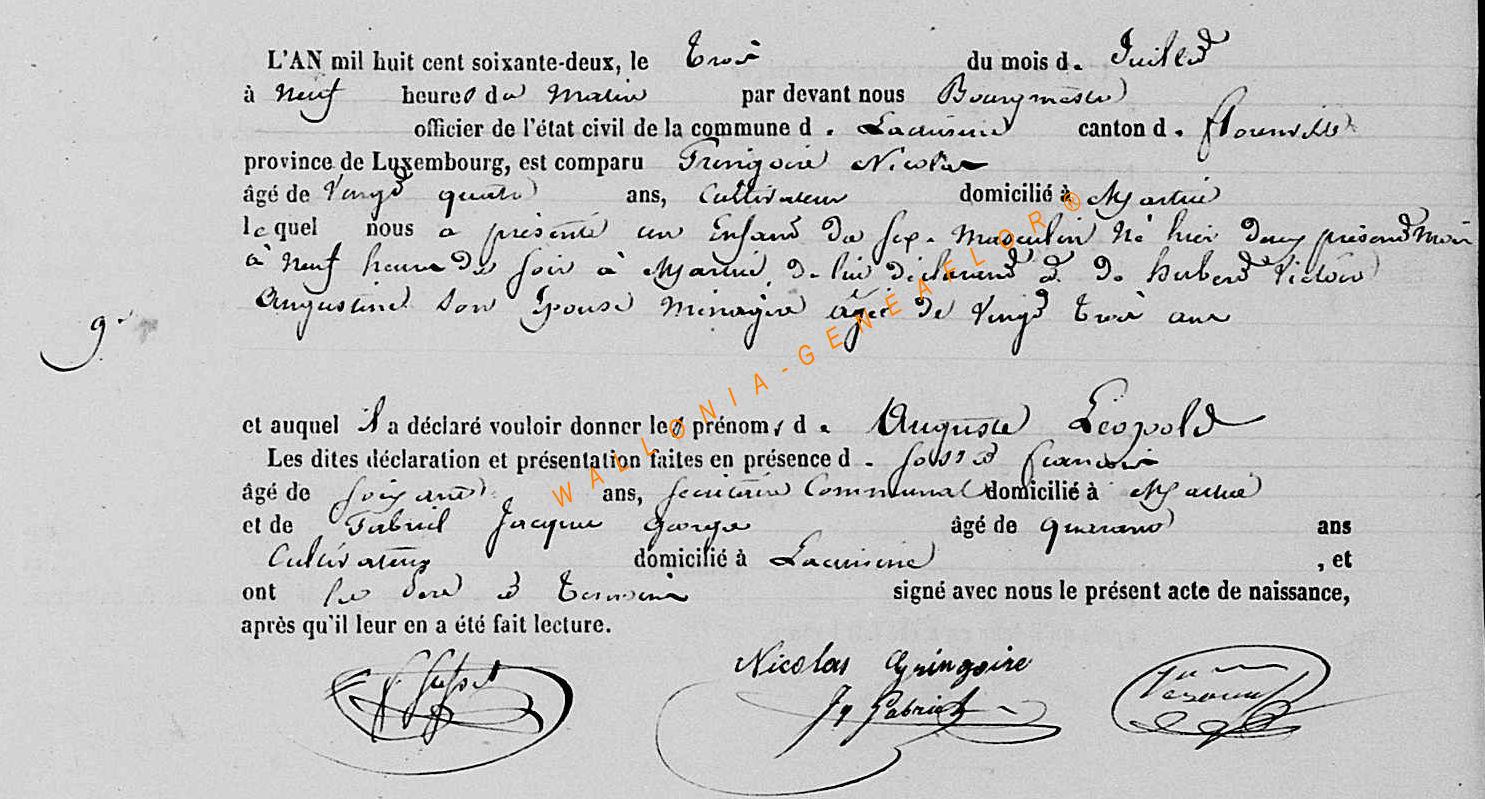 L'AN mil huit cent soixante-deux, le trois du mois d. Juillet
à neuf heures du matin par devant nous Bourgmestre
officier de l'état civil de la commune d. Lacuisine canton d. florenville
province de Luxembourg, est comparu Gringoire Nicolas
âgé de vingt quatre ans, Cultivateur domicilié à Martué
lequel nous a présenté un Enfant du sexe masculin né hier deux présent mois
à neuf heures du soir à Martué, de lui déclarant et de hubert victoire
Augustine son Epouse ménagère âgée de vingt trois ans
9.
et auquel il a déclaré vouloir donner les prénoms d. Auguste Léopold
Les dites déclaration et présentation faites en présence d. françois
âgé de soixante ans, secrétaire Communal domicilié à Martué
et de Gabriel Jacques George âgé de quarante ans
Cultivateur domicilié à Lacuisine , et
ont les père et témoins signé avec nous le présent acte de naissance,
après qu'il leur en a été fait lecture.
Nicolas Gringoire
Jq Gabriel
WALLONIA-GENEAFLOR®